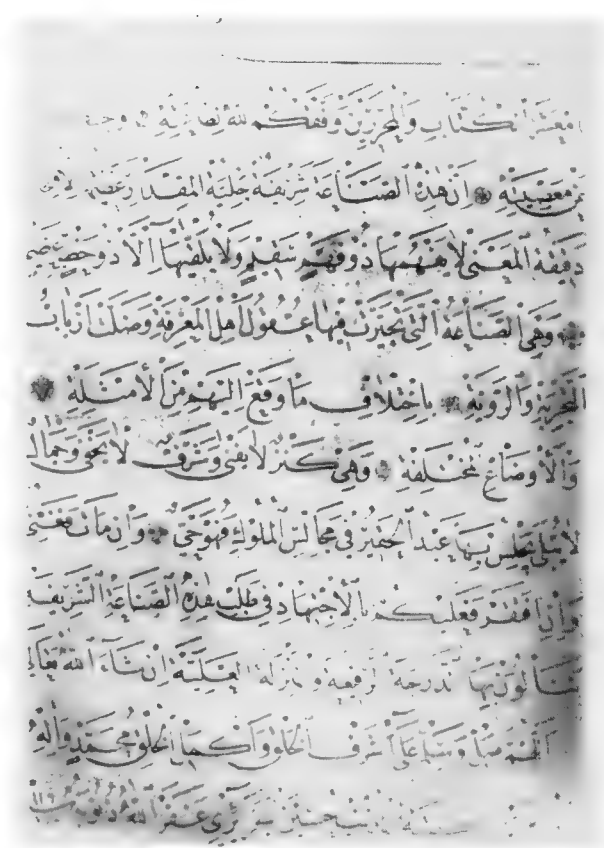 معشر الكتاب والمحررين وفقكم الله
عن معصيته ان هذه الصناعة شريفة جليلة المقدار
دقيقة المعنى لا يفهمها ذو فهم سقيم ولا يلقيها الا ذو حظ
وهي الصناعة التي تحيرت فيها عقول اهل المعرفة وضلت ارباب
التجربة والروية باختلاف ما وقع اليهم من الأمثلة
والأوضاع المختلفة وهي كنز لا يفنى وشرف لا يخفى وجمال
لا يبلى يجلس بها عبد الحقير في مجالس الملوك فهو حي وان مات
وان افتقر فعليكم بالاجتهاد في طلب هذه الصناعة الشريفة
تنالون بها الدرجة الرفيعة والمنزلة العلية ان شاء الله تعالى
اللهم صل وسلم على أشرف الخلق وأكمل الخلق محمد وآله
غفر الله ذنوبه